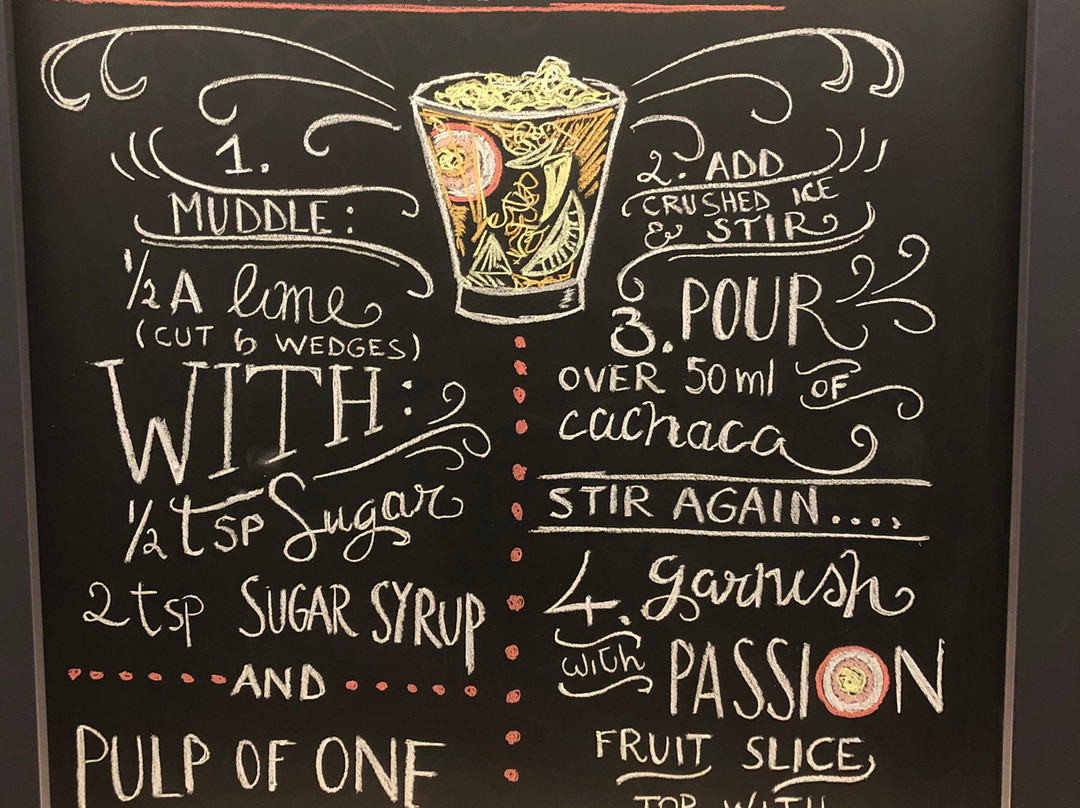 1.
MUDDLE:
½ A lime
(CUT 6 WEDGES)
WITH:
½ tsp Sugar
2 tsp SUGAR SYRUP
AND
PULP OF ONE
2. ADD
CRUSHED ICE
& STIR
3. POUR
OVER 50ml OF
cachaca
STIR AGAIN....
4. garnish
with PASSION
FRUIT SLICE,
TOP WITH